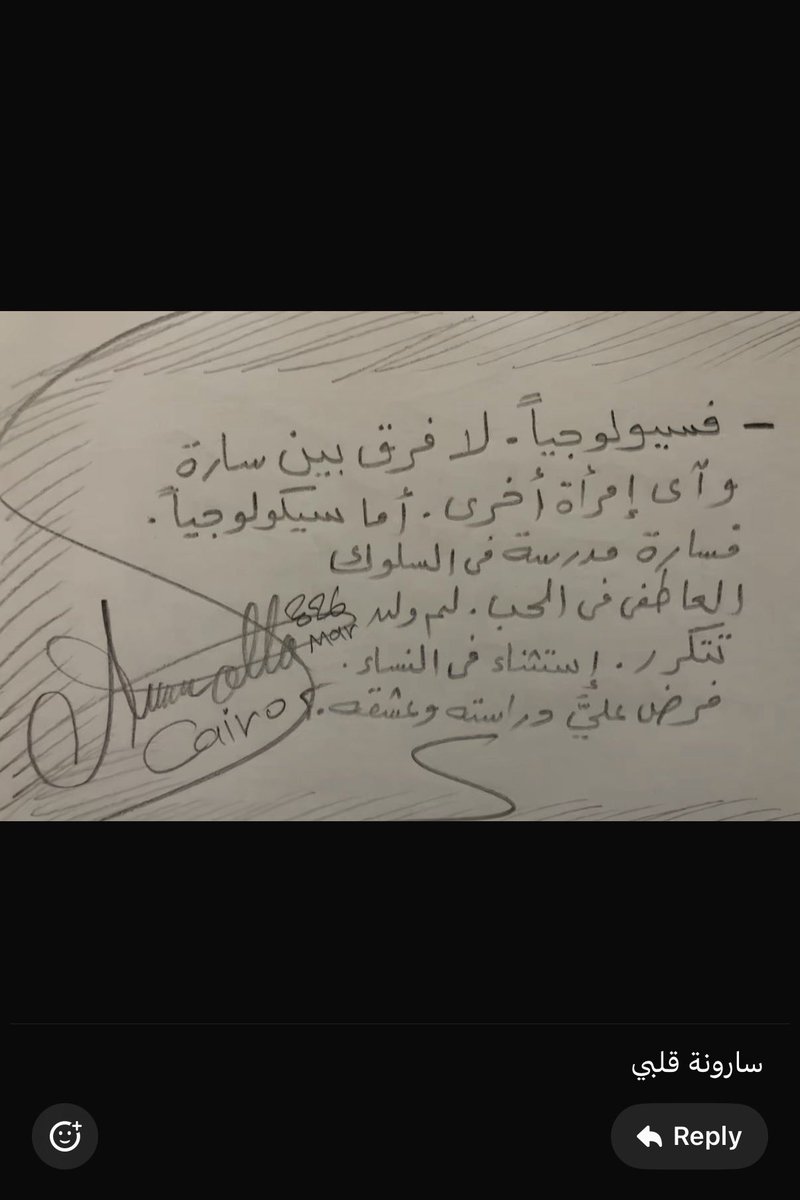 - فسيولوجياً. لا فرق بين سارة
وآى إمرأة أخرى. أما سيكولوجياً.
فسارة مدرسة فى السلوك
العاطفى فى الحب. لم ولن
تتكرر. إستثناء فى النساء.
فرض عليَّ دراسته وعشقه.
Mar
Cairo
سارونة قلبي
Reply